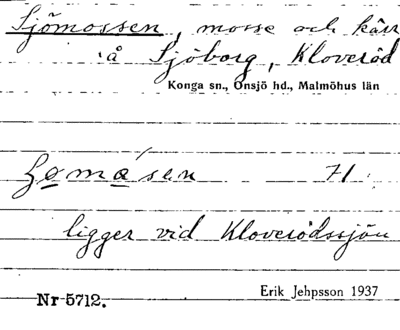 Sjömossen, mosse och kärr
å Sjöborg, Kloveröd
Konga sn., Onsjö hd., Malmöhus län
71
ligger vid Kloverödssjön
Nr 5712.
Erik Jehpsson 1937